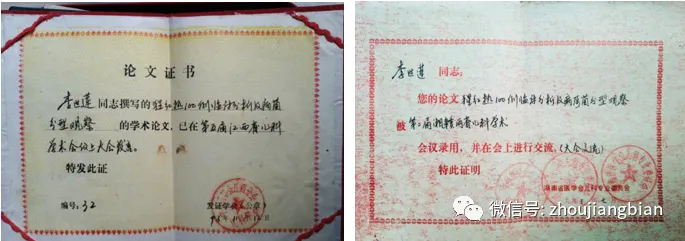 论文证书
李世莲 同志撰写的 猩红热100例临床分析及病原菌
分型观察 的学术论文，已在 第五届江西省儿科
学术会议上大会发言。
特发此证
编号：32
发证学会（公章）
李世莲 同志：
您的论文 猩红热100例临床分析及病原菌分型观察
被 第 届湘赣两省儿科学术
会议录用，并在会上进行交流。（大会交流）
特此证明
湖南省医学会儿科专业委员会
微信号: zhoujiangbian